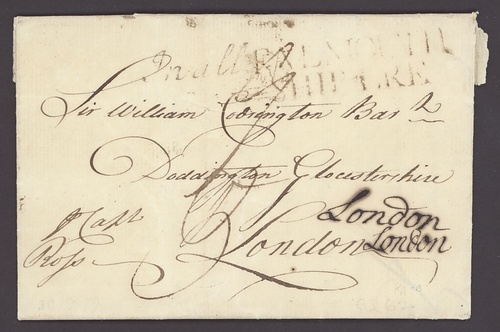 In all
FALMOUTH
SHIP LRE
Sir William Codrington Bar.t
Doddington Glocestershire
London
London
London
p Capt
Ross